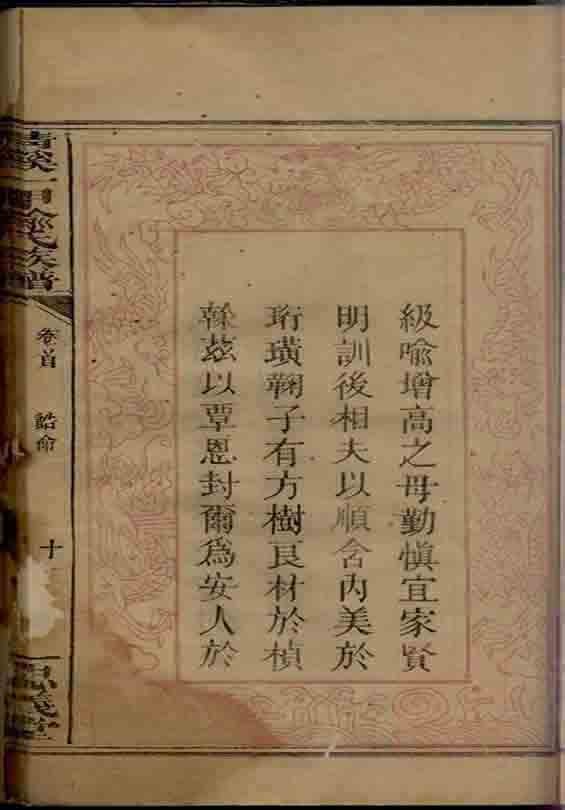 級喻增高之母勤慎宜家賢
明訓後相夫以順含內美於
珩璜鞠子有方樹良材於楨
榦茲以覃恩封爾爲安人於
氏族譜
卷首
誥命
十